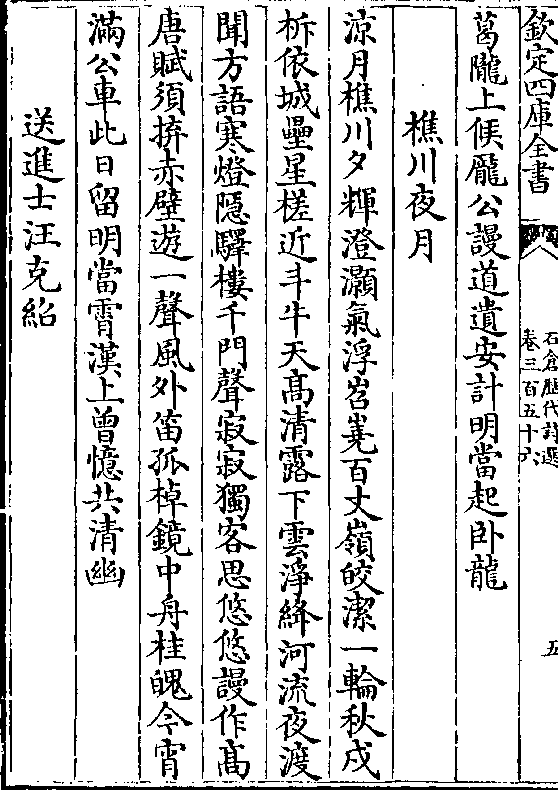 欽定四庫全書
石倉歷代詩選
卷三百五十六
五
葛隴上候龐公謾道遺安計明當起卧龍
樵川夜月
涼月樵川夕輝澄灝氣浮岧嶤百丈嶺皎潔一輪秋戍
柝依城壘星槎近斗牛天高清露下雲淨絳河流夜渡
聞方語寒燈隱驛樓千門聲寂寂獨客思悠悠謾作高
唐賦須拚赤壁遊一聲風外笛孤棹鏡中舟桂魄今宵
滿公車此日留明當霄漢上曾憶共清幽
送進士汪克紹